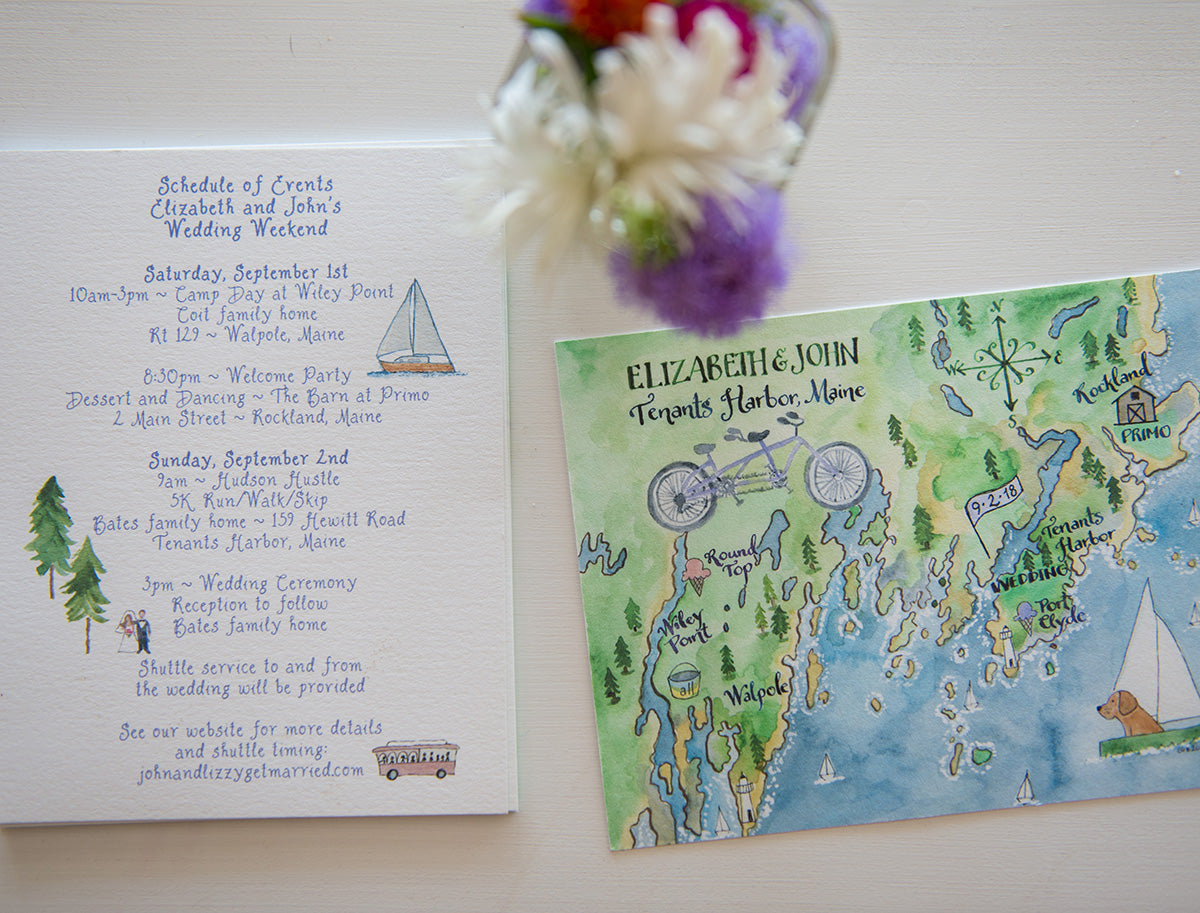 Schedule of Events
Elizabeth and John's
Wedding Weekend
Saturday, September 1st
10am-3pm ~ Camp Day at Wiley Point
Coit family home
Rt 129 ~ Walpole, Maine
8:30pm ~ Welcome Party
Dessert and Dancing ~ The Barn at Primo
2 Main Street ~ Rockland, Maine
Sunday, September 2nd
9am ~ Hudson Hustle
5K Run/Walk/Skip
Bates family home ~ 159 Hewitt Road
Tenants Harbor, Maine
3pm ~ Wedding Ceremony
Reception to follow
Bates family home
Shuttle service to and from
the wedding will be provided
See our website for more details
and shuttle timing:
johnandlizzygetmarried.com
ELIZABETH & JOHN
Tenants Harbor, Maine
N
W
E
S
Rockland
PRIMO
9·2·18
Tenants
Harbor
WEDDING
Port
Clyde
Round
Top
Wiley
Point
all
Walpole